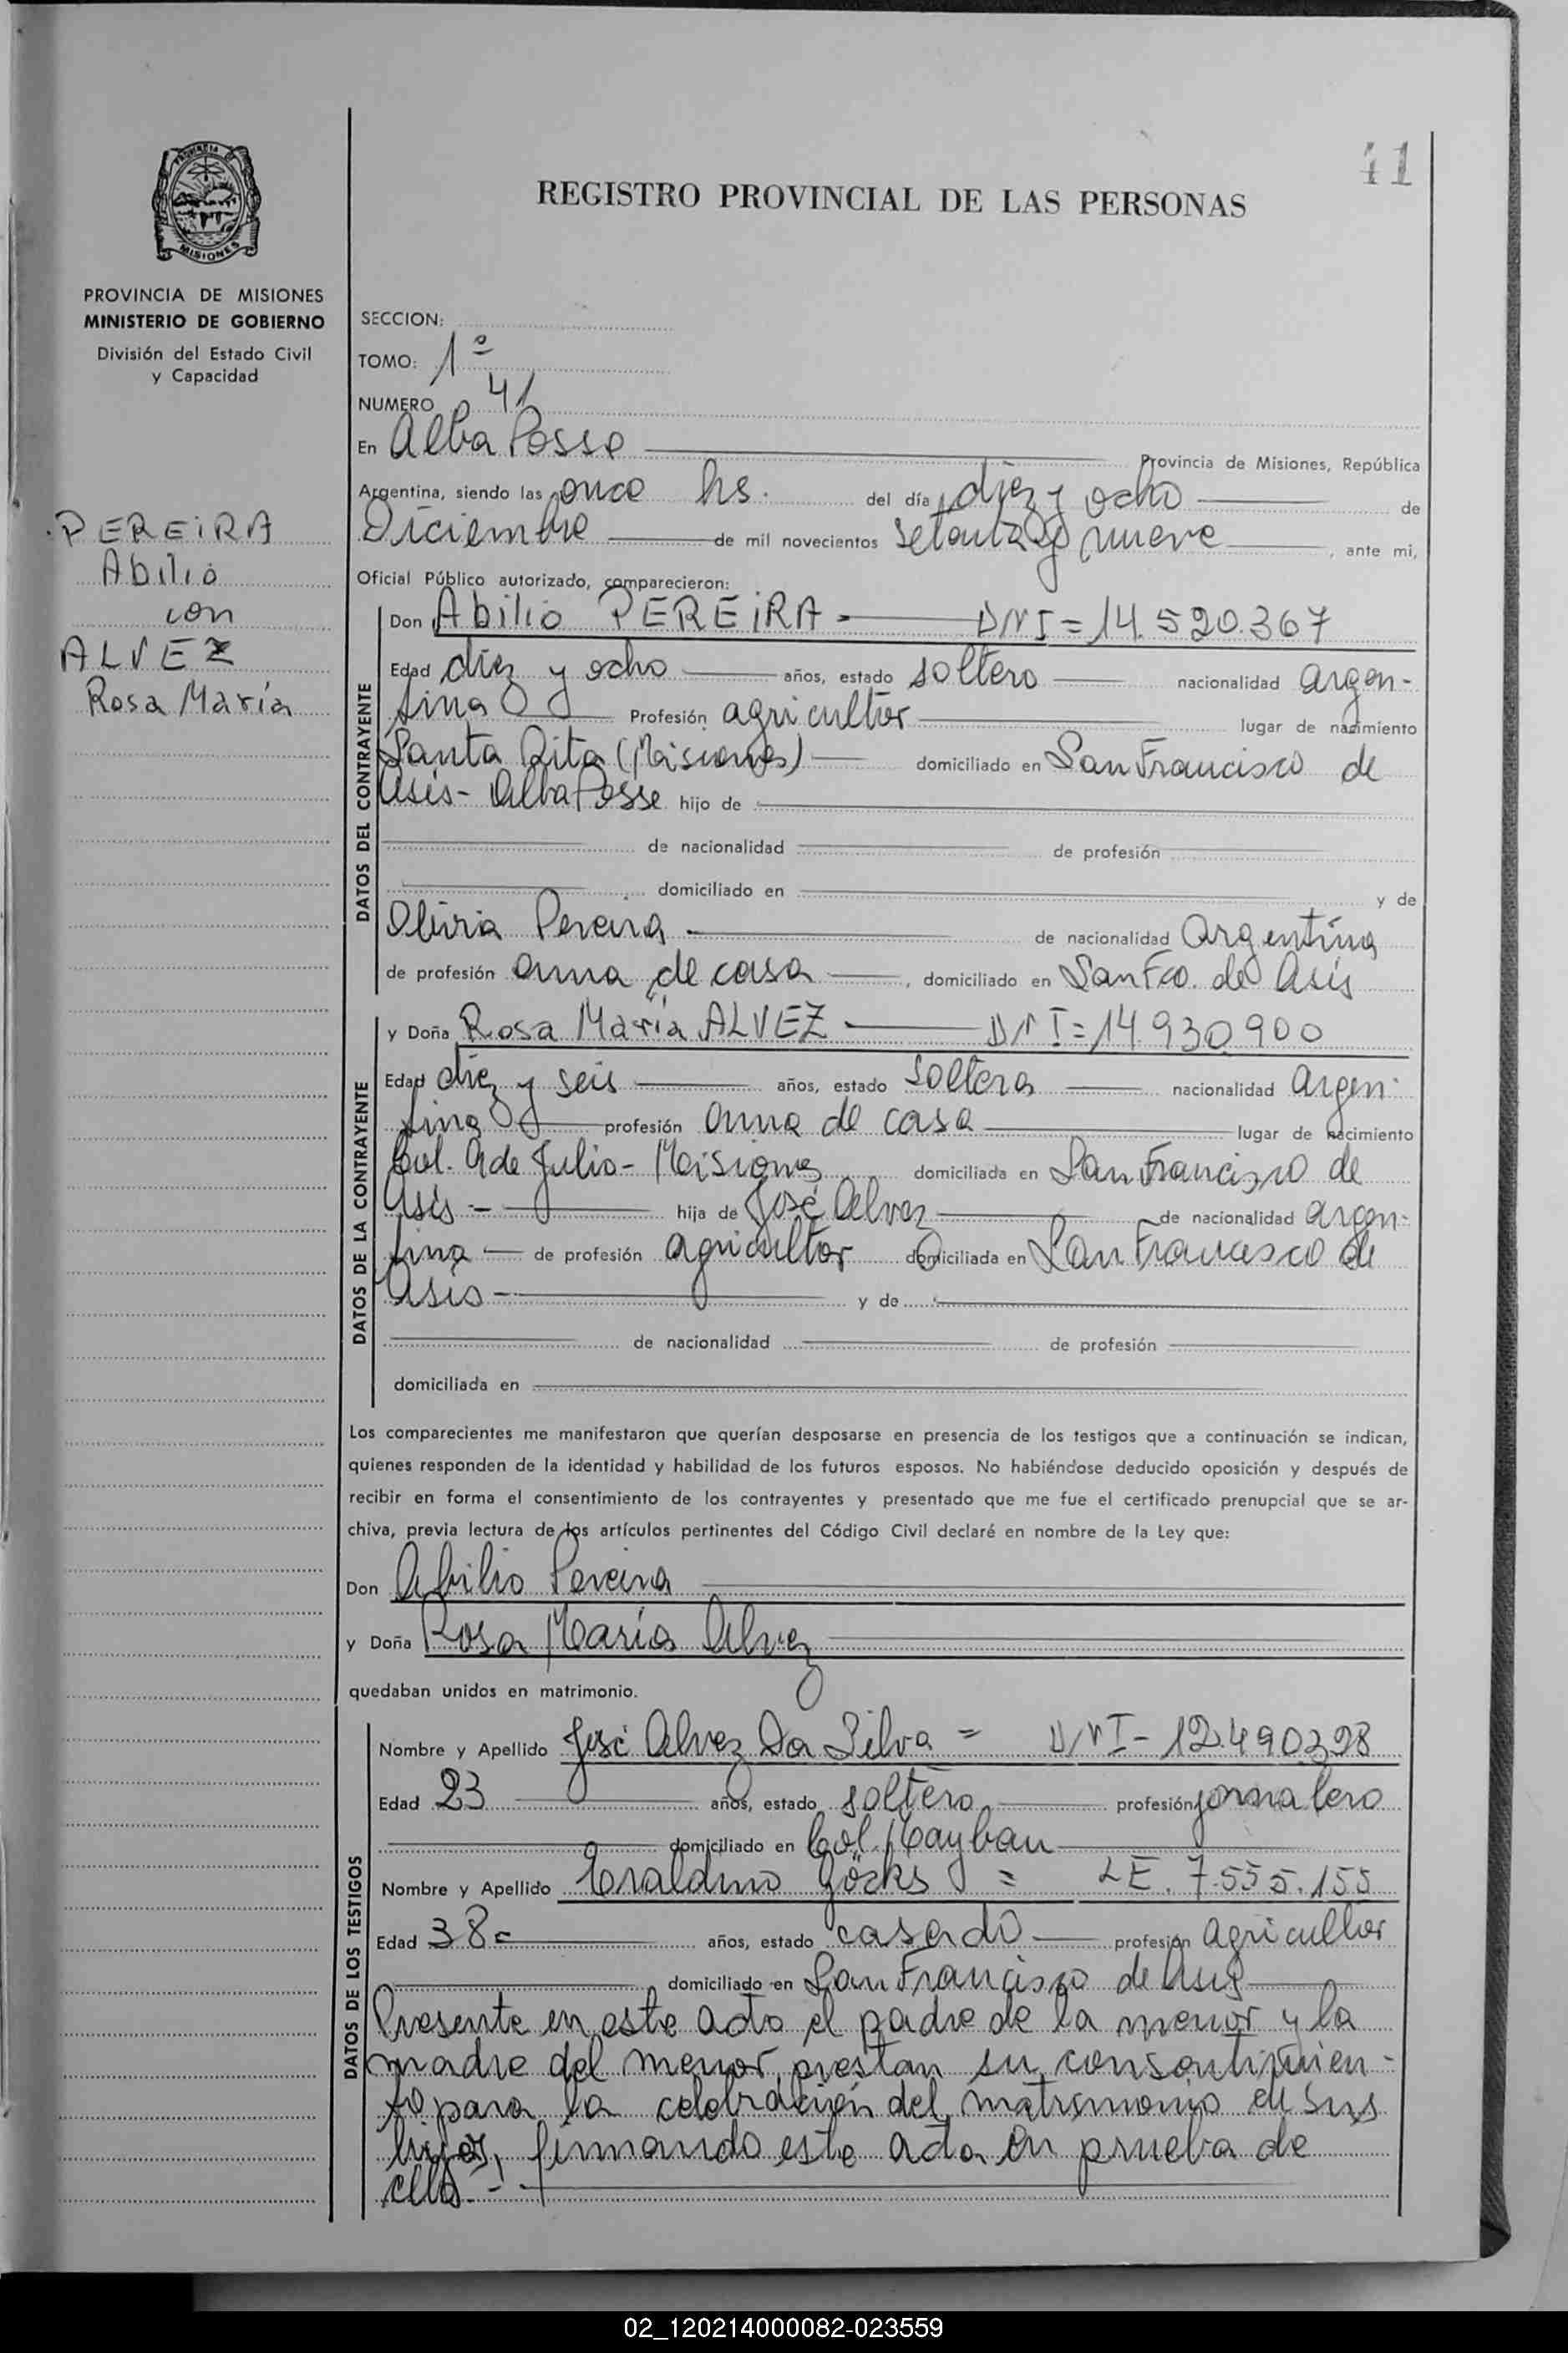 41
REGISTRO PROVINCIAL DE LAS PERSONAS
PROVINCIA DE MISIONES
PROVINCIA DE MISIONES
MINISTERIO DE GOBIERNO
División del Estado Civil
y Capacidad
PEREIRA
Abilio
con
ALVEZ
Rosa María
SECCION:
TOMO: 1º
NUMERO 41
En Alba Posse Provincia de Misiones, República
Argentina, siendo las once hs. del día diez y ocho de
Diciembre de mil novecientos setenta y nueve, ante mi,
Oficial Público autorizado, comparecieron:
DATOS DEL CONTRAYENTE
Don Abilio PEREIRA - DNI = 14.520.367
Edad diez y ocho años, estado soltero nacionalidad argen-
tina Profesión agricultor lugar de nacimiento
Santa Rita (Misiones) domiciliado en San Francisco de
Asis - Alba Posse hijo de
de nacionalidad de profesión
domiciliado en y de
Oliria Pereira de nacionalidad Argentina
de profesión ama de casa, domiciliado en San Fco. de Asis
DATOS DE LA CONTRAYENTE
y Doña Rosa María ALVEZ - DNI = 14.930.900
Edad diez y seis años, estado soltera nacionalidad argen-
tina profesión ama de casa lugar de nacimiento
Col. 9 de Julio - Misiones domiciliada en San Francisco de
Asis - hija de José Alvez de nacionalidad argen-
tina de profesión agricultor domiciliada en San Francisco de
Asis - y de
de nacionalidad de profesión
domiciliada en
Los comparecientes me manifestaron que querían desposarse en presencia de los testigos que a continuación se indican,
quienes responden de la identidad y habilidad de los futuros esposos. No habiéndose deducido oposición y después de
recibir en forma el consentimiento de los contrayentes y presentado que me fue el certificado prenupcial que se ar-
chiva, previa lectura de los artículos pertinentes del Código Civil declaré en nombre de la Ley que:
Don Abilio Pereira
y Doña Rosa María Alvez
quedaban unidos en matrimonio.
DATOS DE LOS TESTIGOS
Nombre y Apellido José Alvez Da Silva = DNI - 12.490.398
Edad 23 años, estado soltero profesión jornalero
domiciliado en Col. Mayban
Nombre y Apellido Eraldino Göcks = LE. 7.555.155
Edad 38 = años, estado casado profesión agricultor
domiciliado en San Francisco de Asis
Presente en este acto el padre de la menor y la
madre del menor, prestan su consentimien-
to para la celebración del matrimonio de sus
hijos, firmando este acta en prueba de
ello. -
02_120214000082-023559